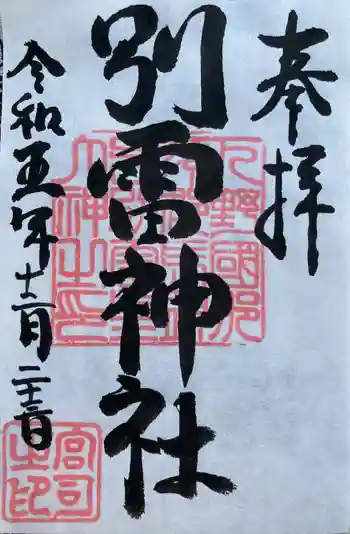 奉拝
別雷神社
令和五年十二月二十三日
宮司之印